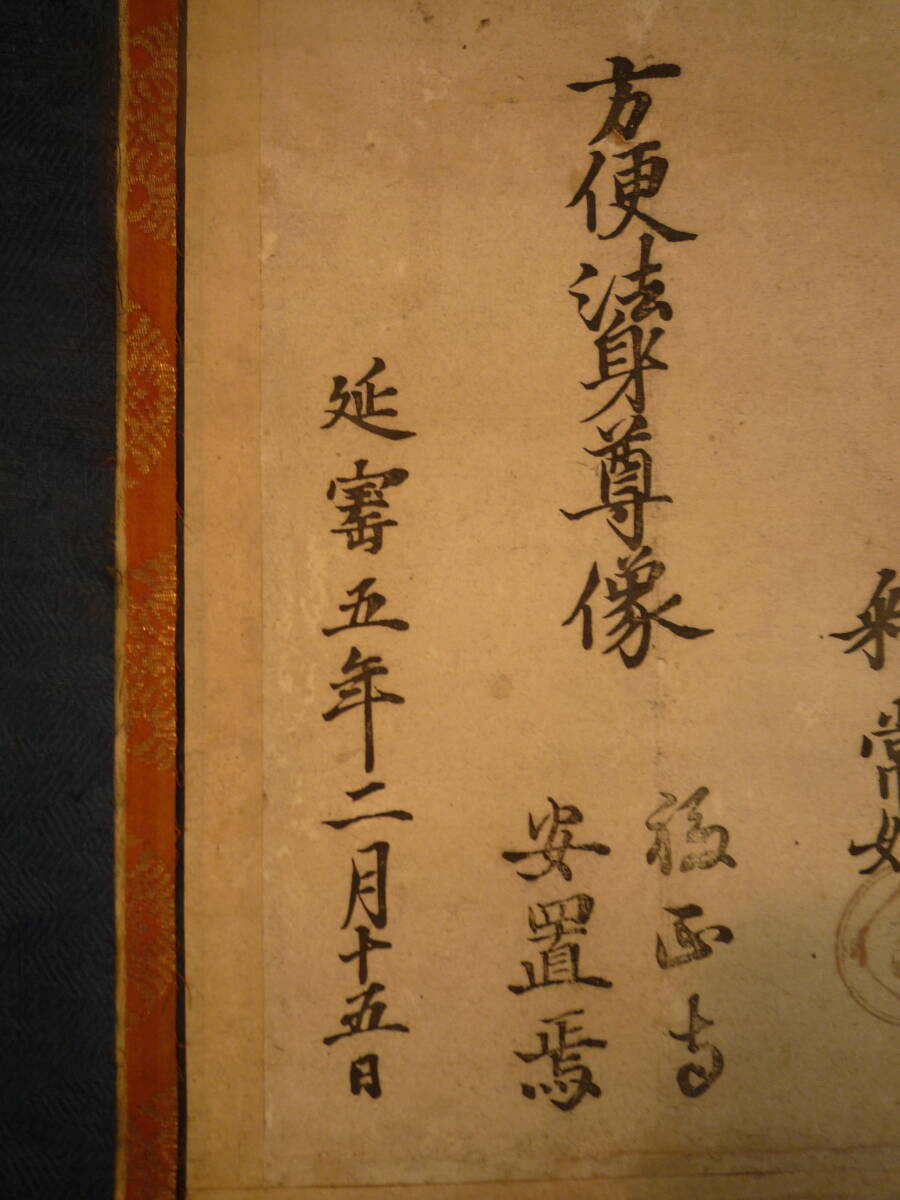 釈常如
方便法身尊像
福正寺
安置焉
延宝五年二月十五日